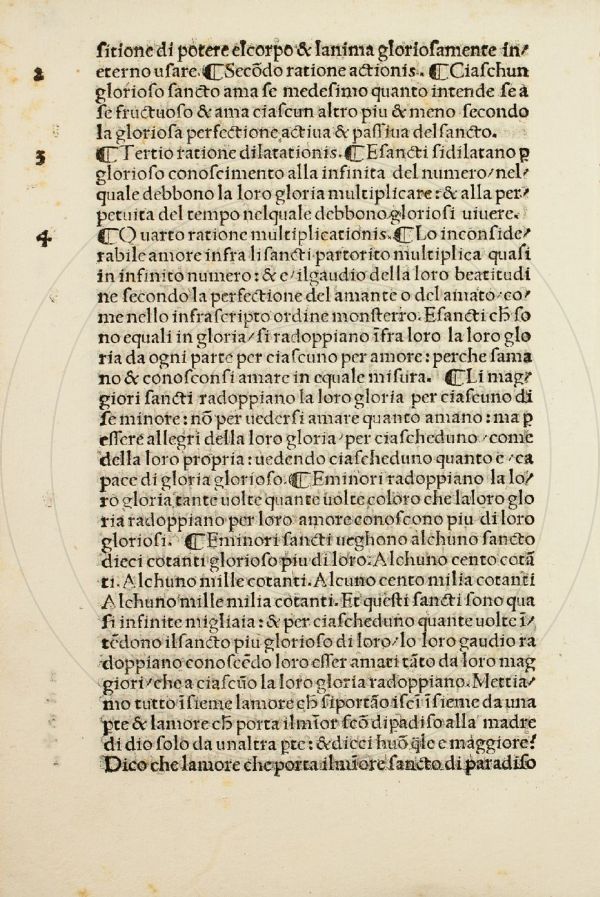 sitione di potere elcorpo & lanima gloriosamente in⸗
2 eterno usare. ¶Secōdo ratione actionis. ¶Ciaschun
glorioso sancto ama se medesimo quanto intende se a
se fructuoso & ama ciascun altro piu & meno secondo
la gloriosa perfectione actiua & passiua del sancto.
3 ¶Tertio ratione dilatationis. ¶E sancti si dilatano ꝑ
glorioso conoscimento alla infinita del numero/nel⸗
quale debbono la loro gloria multiplicare: & alla per⸗
petuita del tempo nelquale debbono gloriosi uiuere.
4 ¶Quarto ratione multiplicationis. ¶Lo inconside⸗
rabile amore infra li sancti partorito multiplica quasi
in infinito numero: & e/ilgaudio della loro beatitudi
ne secondo la perfectione del amante o del amato/co⸗
me nello infrascripto ordine monsterro. E sancti ch̄ so
no equali in gloria/si radoppiano īfra loro la loro glo
ria da ogni parte per ciascuno per amore: perche sama
no & conosconsi amare in equale misura. ¶Li mag⸗
giori sancti radoppiano la loro gloria per ciascuno di
se minore: nō per uedersi amare quanto amano: ma ꝑ
essere allegri della loro gloria/per ciascheduno/come
della loro propria: uedendo ciascheduno quanto e/ca
pace di gloria glorioso. ¶E minori radoppiano la lo⸗
ro gloria tante uolte quante uolte coloro che laloro glo
ria radoppiano per loro amore conoscono piu di loro
gloriosi. ¶E minori sancti ueghono alchuno sancto
dieci cotanti glorioso piu di loro: Alchuno cento cotā
ti. Alchuno mille cotanti. Alcuno cento milia cotanti
Alchuno mille milia cotanti. Et questi sancti sono qua
si infinite migliaia: & per ciascheduno quante uolte ī⸗
tēdono ilsancto piu glorioso di loro/lo loro gaudio ra
doppiano conoscēdo loro esser amati tāto da loro mag
giori/che a ciascūo la loro gloria radoppiano. Mettia⸗
mo tutto īsieme lamore ch̄ si portāo i sc̄i īsieme da una
pte & lamore ch̄ porta il mīor sc̄o di padiso alla madre
di dio solo da unaltra pte: & dicci huō qł̄e e maggiore?
Dico che lamore che porta il mīore sancto di paradiso